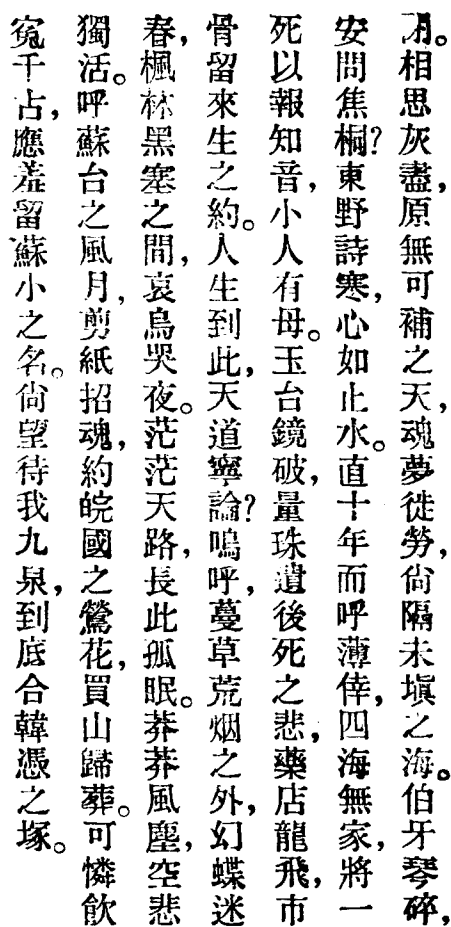 朋。相思灰盡，原無可補之天，魂夢徙勞，尙隔未塡之海。伯牙琴碎，
安問焦桐？東野詩寒，心如止水。直十年而呼薄倖，四海無家，將一
死以報知音，小人有母。玉台鏡破，量珠遺後死之悲，藥店龍飛，市
骨留來生之約。人生到此，天道寧論？嗚呼，蔓草荒烟之外，幻蝶迷
春，楓林黑塞之間，哀鳥哭夜。茫茫天路，長此孤眠。莽莽風塵，空悲
獨活。呼蘇台之風月，剪紙招魂，約皖國之鶯花，買山歸葬。可憐飮
寃千古，應羞留蘇小之名。尙望待我九泉，到底合韓憑之塚。